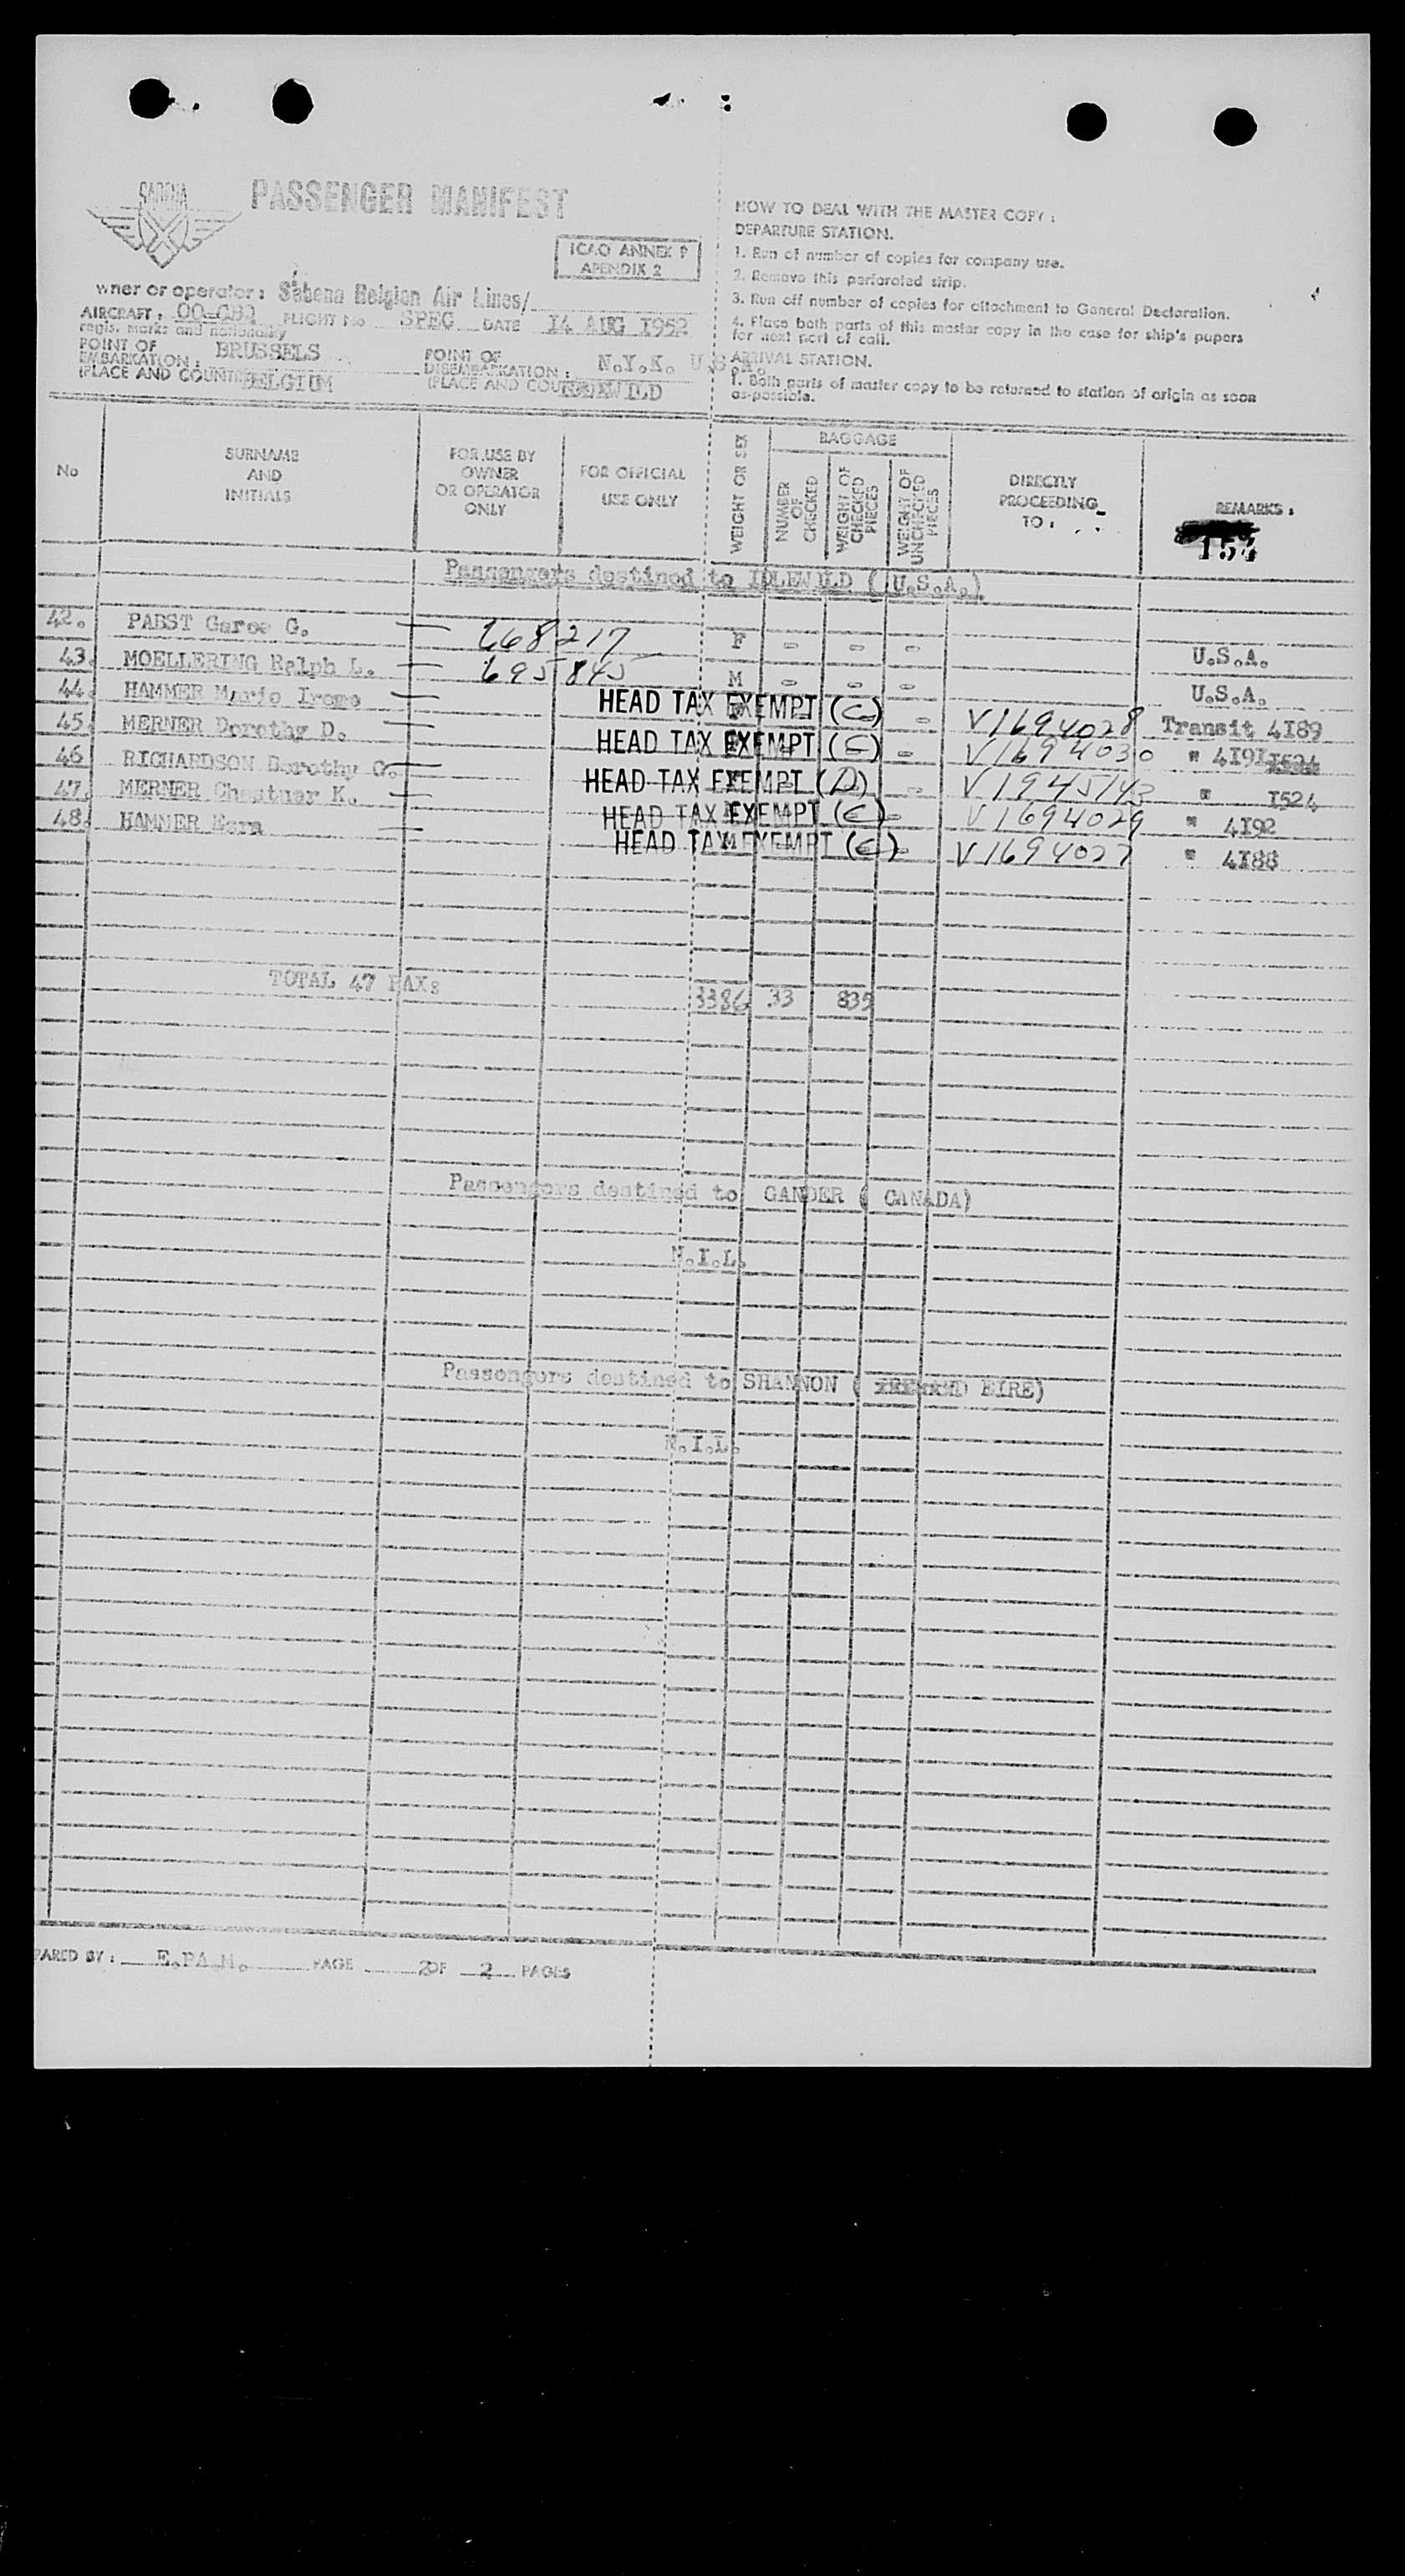 SABENA
PASSENGER MANIFEST
ICAO ANNEX 9
APENDIX 2
wner or operator : Sabena Belgian Air Lines/
AIRCRAFT : FLIGHT No SPEC DATE 14 AUG 1952
regis. marks and nationality
POINT OF EMBARKATION : BRUSSELS
(PLACE AND COUNTRY BELGIUM
POINT OF DISEMBARKATION : N.Y.K. U.S.A.
(PLACE AND COU IDLEWILD
HOW TO DEAL WITH THE MASTER COPY :
DEPARTURE STATION.
1. Run of number of copies for company use.
2. Remove this perforated strip.
3. Run off number of copies for attachment to General Declaration.
4. Place both parts of this master copy in the case for ship's papers
for next port of call.
ARRIVAL STATION.
1. Both parts of master copy to be returned to station of origin as soon
as possible.
No
SURNAME
AND
INITIALS
FOR USE BY
OWNER
OR OPERATOR
ONLY
FOR OFFICIAL
USE ONLY
WEIGHT OR SEX
BAGGAGE
NUMBER OF CHECKED
WEIGHT OF CHECKED PIECES
WEIGHT OF UNCHECKED PIECES
DIRECTLY
PROCEEDING
TO :
REMARKS :
154
Passengers destined to IDLEWILD ( U.S.A.)
42. PABST G. 668217 F - - - U.S.A.
43. MOELLERING Ralph L. 695845 M - - - U.S.A.
44. HAMMER Marjo Irene HEAD TAX EXEMPT (C) - V1694028 Transit 4189
45. MERNER Dorothy D. HEAD TAX EXEMPT (C) - V1694030 " 4191
46 RICHARDSON Dorothy G. HEAD TAX EXEMPT (D) - V1945143 " 1524
47. MERNER K. HEAD TAX EXEMPT (C) - V1694029 " 4192
48. HAMMER Ezra HEAD TAX EXEMPT (C) - V1694027 " 4188
TOTAL 47 PAX: 3386 33 835
Passengers destined to GANDER ( CANADA)
N.I.L.
Passengers destined to SHANNON ( EIRE)
N.I.L.
PARED BY : E.PA.M. PAGE 2 OF 2 PAGES